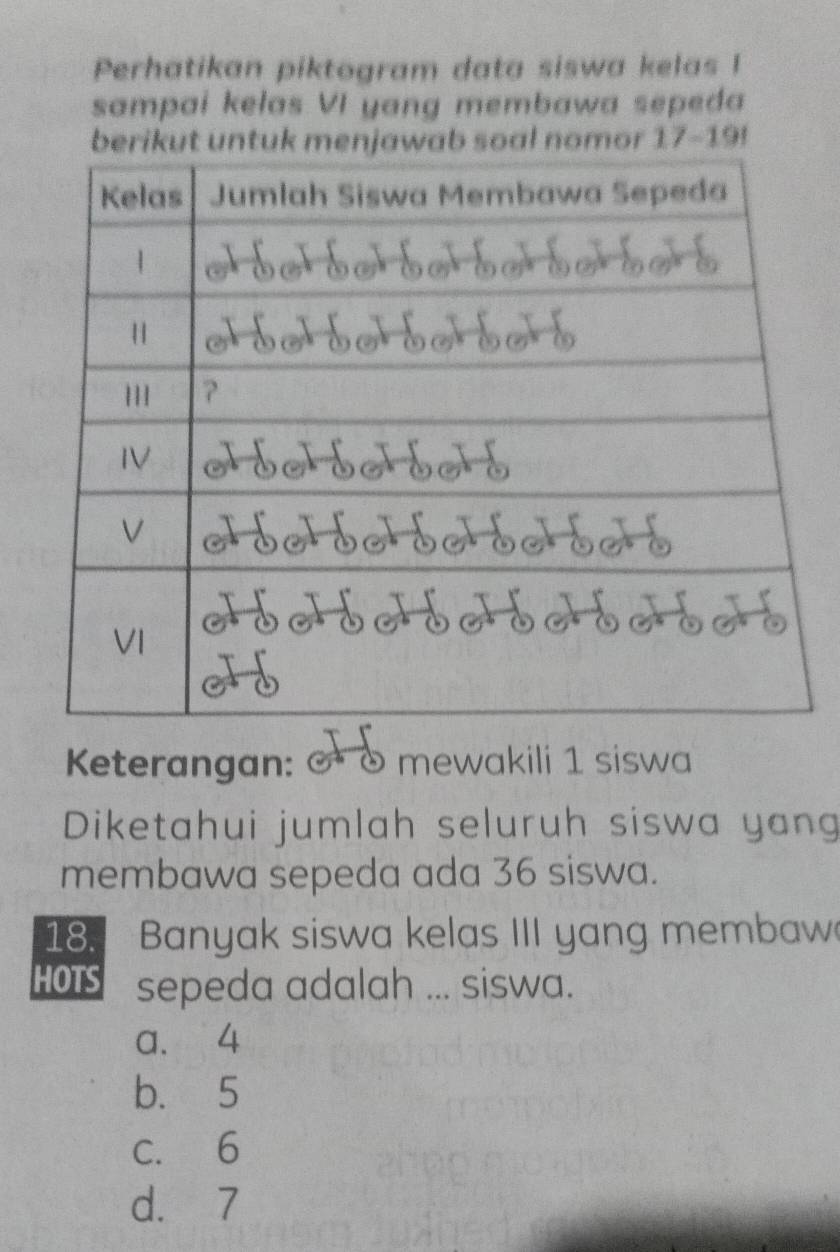 Perhatikan piktogram data siswa kelas I
sampai kelas VI yang membawa sepeda
berikut untuk menjawab soal nomor 17-19!
Kelas Jumlah Siswa Membawa Sepeda
I
II
III ?
IV
V
VI
Keterangan: mewakili 1 siswa
Diketahui jumlah seluruh siswa yang
membawa sepeda ada 36 siswa.
18. Banyak siswa kelas III yang membawa
HOTS sepeda adalah ... siswa.
a. 4
b. 5
c. 6
d. 7